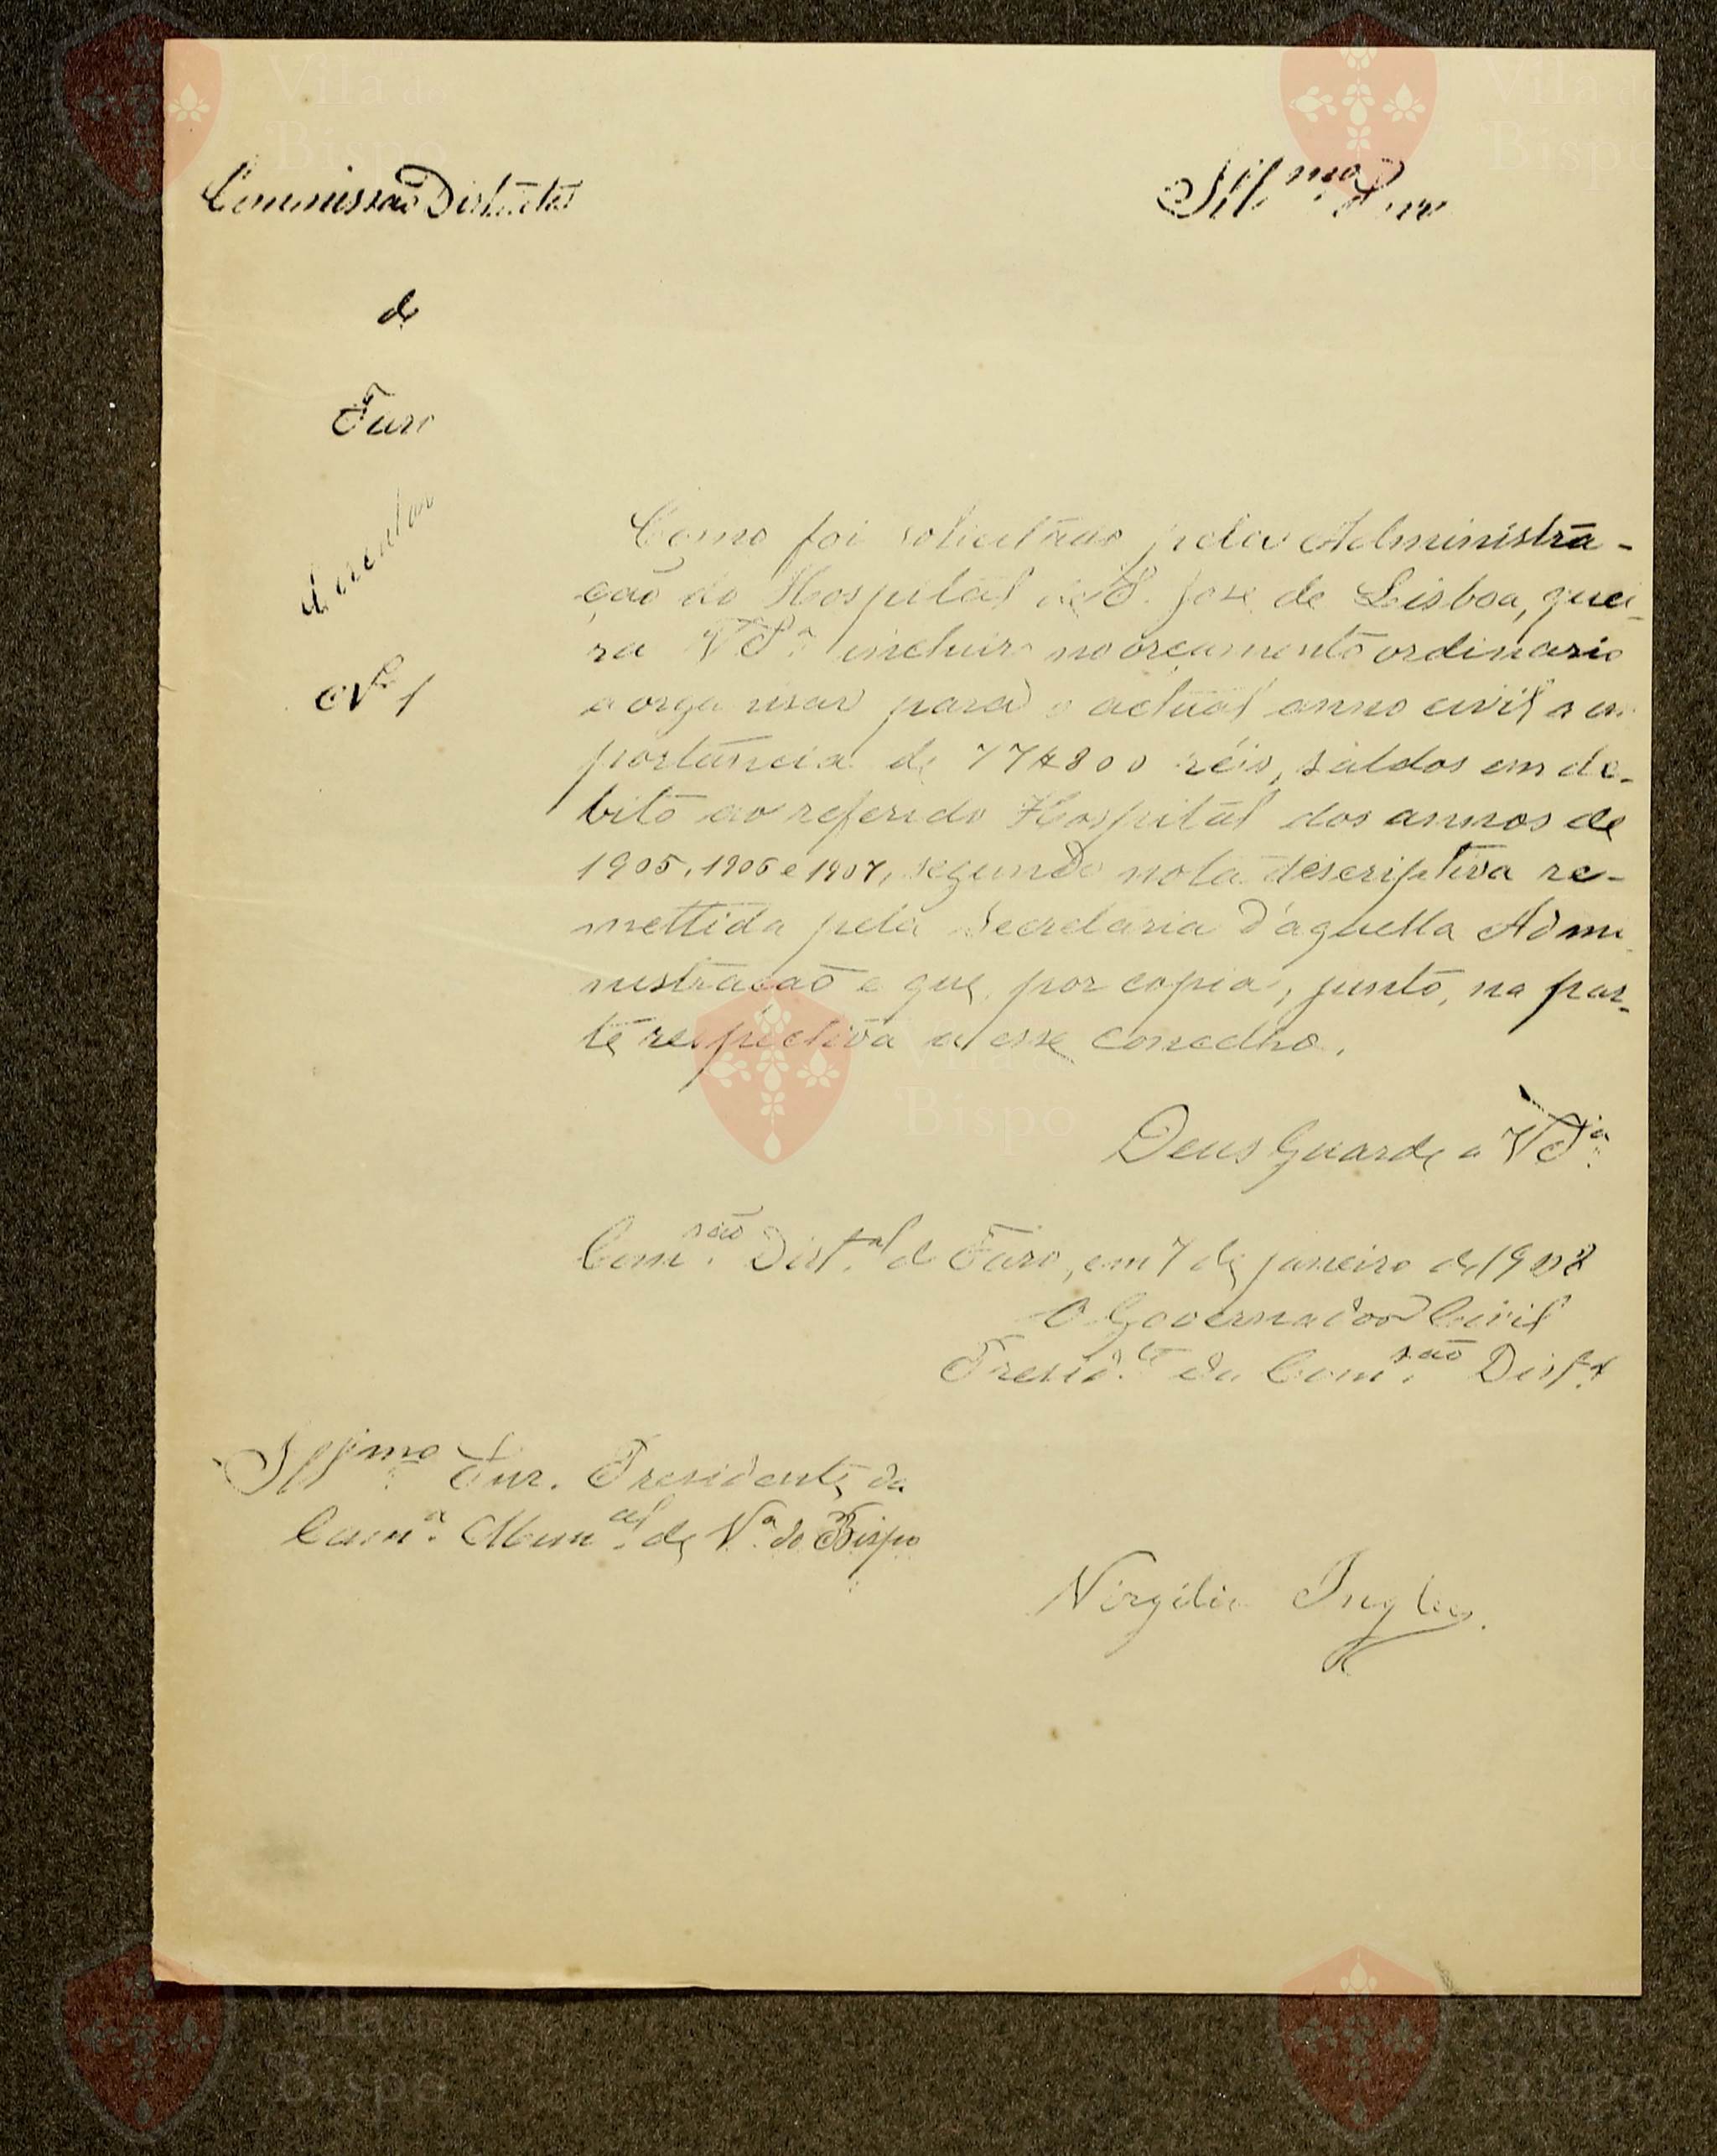 Commissão Districtal
de
Faro
Circular
Nº 1
Illmo Snr
Como foi solicitado pela Administra-
ção do Hospital de S. José de Lisboa, quei-
ra V Sª incluir no orçamento ordinario
a organisar para o actual anno civil a im
portancia de 77$800 réis, saldos em de-
bito ao referido Hospital dos annos de
1905, 1906 e 1907, segundo nota descriptiva re-
mettida pela Secretaria d'aquella Admi
nistração e que, por copia, junto, na par-
te respectiva a esse concelho.
Deus Guarde a V Sª
Com.são Dist.al de Faro, em 7 de janeiro de 1908
O Governador Civil
Presid.te da Com.são Dist.al
Illmo Snr. Presidente da
Cam.ª Mun.al de Vª do Bispo
Virgilio Inglez.
Vila do
Bispo
Vila do
Bispo
Vila do
Bispo
Vila do
Bispo
Vila do
Bispo